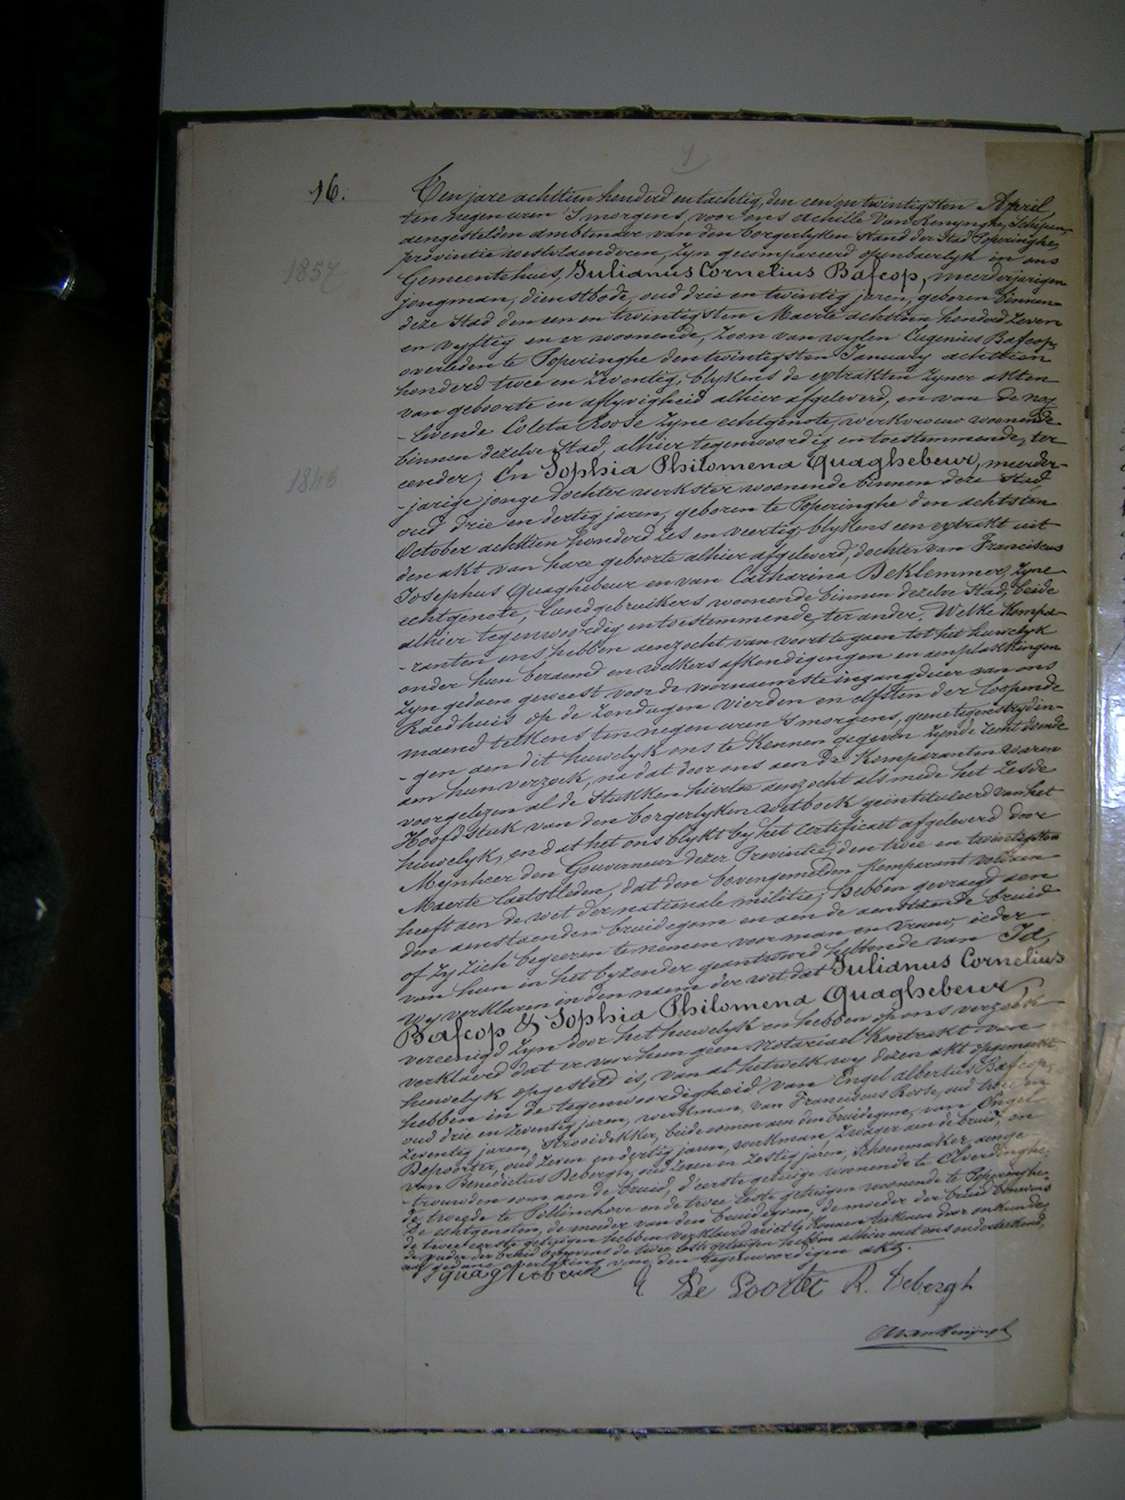 1
16.
Ten jare achttien honderd en tachtig, den een en twintigsten April
ten negen uren 's morgens, voor ons Achille Van Renynghe, Schepen,
aengestelden ambtenaer van den borgerlyken Stand der Stad Poperinghe,
provintie Westvlaenderen, zyn gecompareerd openbaerlyk in ons
1857
Gemeentehuis, Julianus Cornelius Bafcop, meerderjarigen
jongman, dienstbode, oud drie en twintig jaren, geboren binnen
deze Stad den een en twintigsten Maerte achttien honderd zeven
en vyftig en er woonende, Zoon van wylen Eugenius Bafcop,
overleden te Poperinghe den twintigsten January achttien
honderd twee en zeventig, blykens de extrakten zyner akten
van geboorte en aflyvigheid alhier afgeleverd, en van de nog
-levende Coleta Roose zyne echtgenote, werkvrouw woonende
binnen dezelve Stad, alhier tegenwoordig en toestemmende, ter
1846
eender; En Sophia Philomena Quaghebeur, meerder-
-jarige jonge dochter werkster woonende binnen deze Stad
oud drie en dertig jaren, geboren te Poperinghe den achtsten
October achttien honderd zes en veertig, blykens een extrakt uit
den akt van hare geboorte alhier afgeleverd, dochter van Franciscus
Josephus Quaghebeur en van Catharina DeKlemmer, zyne
echtgenote, landgebruikers woonende binnen dezelve Stad, beide
alhier tegenwoordig en toestemmende, ter ander. Welke Kompa-
-ranten ons hebben aenzocht van voort te gaen tot het huwelyk
onder hun beraemd en welkers afkondigingen en aenplakkingen
zyn gedaen geweest voor de voornaemste ingangdeur van ons
Raedhuis op de zondagen vierden en elfsten der loopende
maend telkens ten negen uren 's morgens, geene tegenstrydin-
-gen aen dit huwelyk ons te Kennen gegeven zynde
aen hun verzoek, na dat door ons aen de Komparanten waren
voorgelezen al de Stukken hiertoe aenzocht als mede het zesde
Hoofdstuk van den borgerlyken wetboek geïntituleerd van het
huwelyk, en dat het ons blykt by het certificaet afgeleverd door
Mynheer den Gouverneur dezer Provintie, den twee en twintigsten
Maerte laetstleden, dat den bovengemelden Komparant voldaen
heeft aen de wet der nationale militie; Hebben gevraegd aen
den aenstaenden bruidegom en aen de aenstaende bruid
of zy zich begeeren te nemen voor man en vrouw, ieder
van hun in het byzonder geantwoord hebbende van Ja,
wy verklaren in den naem der wet dat Julianus Cornelius
Bafcop & Sophia Philomena Quaghebeur,
vereenigd zyn door het huwelyk en hebben op ons verzoek
verklaerd dat er voor hun geen notariael Kontrakt van
huwelyk opgesteld is, van al hetwelk wy dezen akt opgemaekt
hebben in de tegenwoordigheid van Engel Albertus Bafcop,
oud drie en zeventig jaren, werkman, van Franciscus Roose, oud
zeventig jaren, Strooidekker, beide oomen aen den bruidegom, van Engel
Depoorter, oud zeven en dertig jaren, werkman, zwager aen de bruid, en
van Benedictus Debergh, oud zeven en zestig jaren, Schoenmaker, aenge-
-trouwden oom aen de bruid, d'eerste getuige woonende te Elverdinghe,
de tweede te Pollinchove en de twee leste getuigen woonende te Poperinghe.
De echtgenoten, de moeder van den bruidegom, de moeder der bruid benevens
de twee eerste getuigen hebben verklaerd niet te Konnen teekenen door onkunde,
de vader der bruid benevens de twee leste getuigen hebben alhier met ons onderteekend,
na gedane voorlezing van den tegenwoordigen akt.
quaghebeur De Poorter R. Debergh
AVanRenijnghe